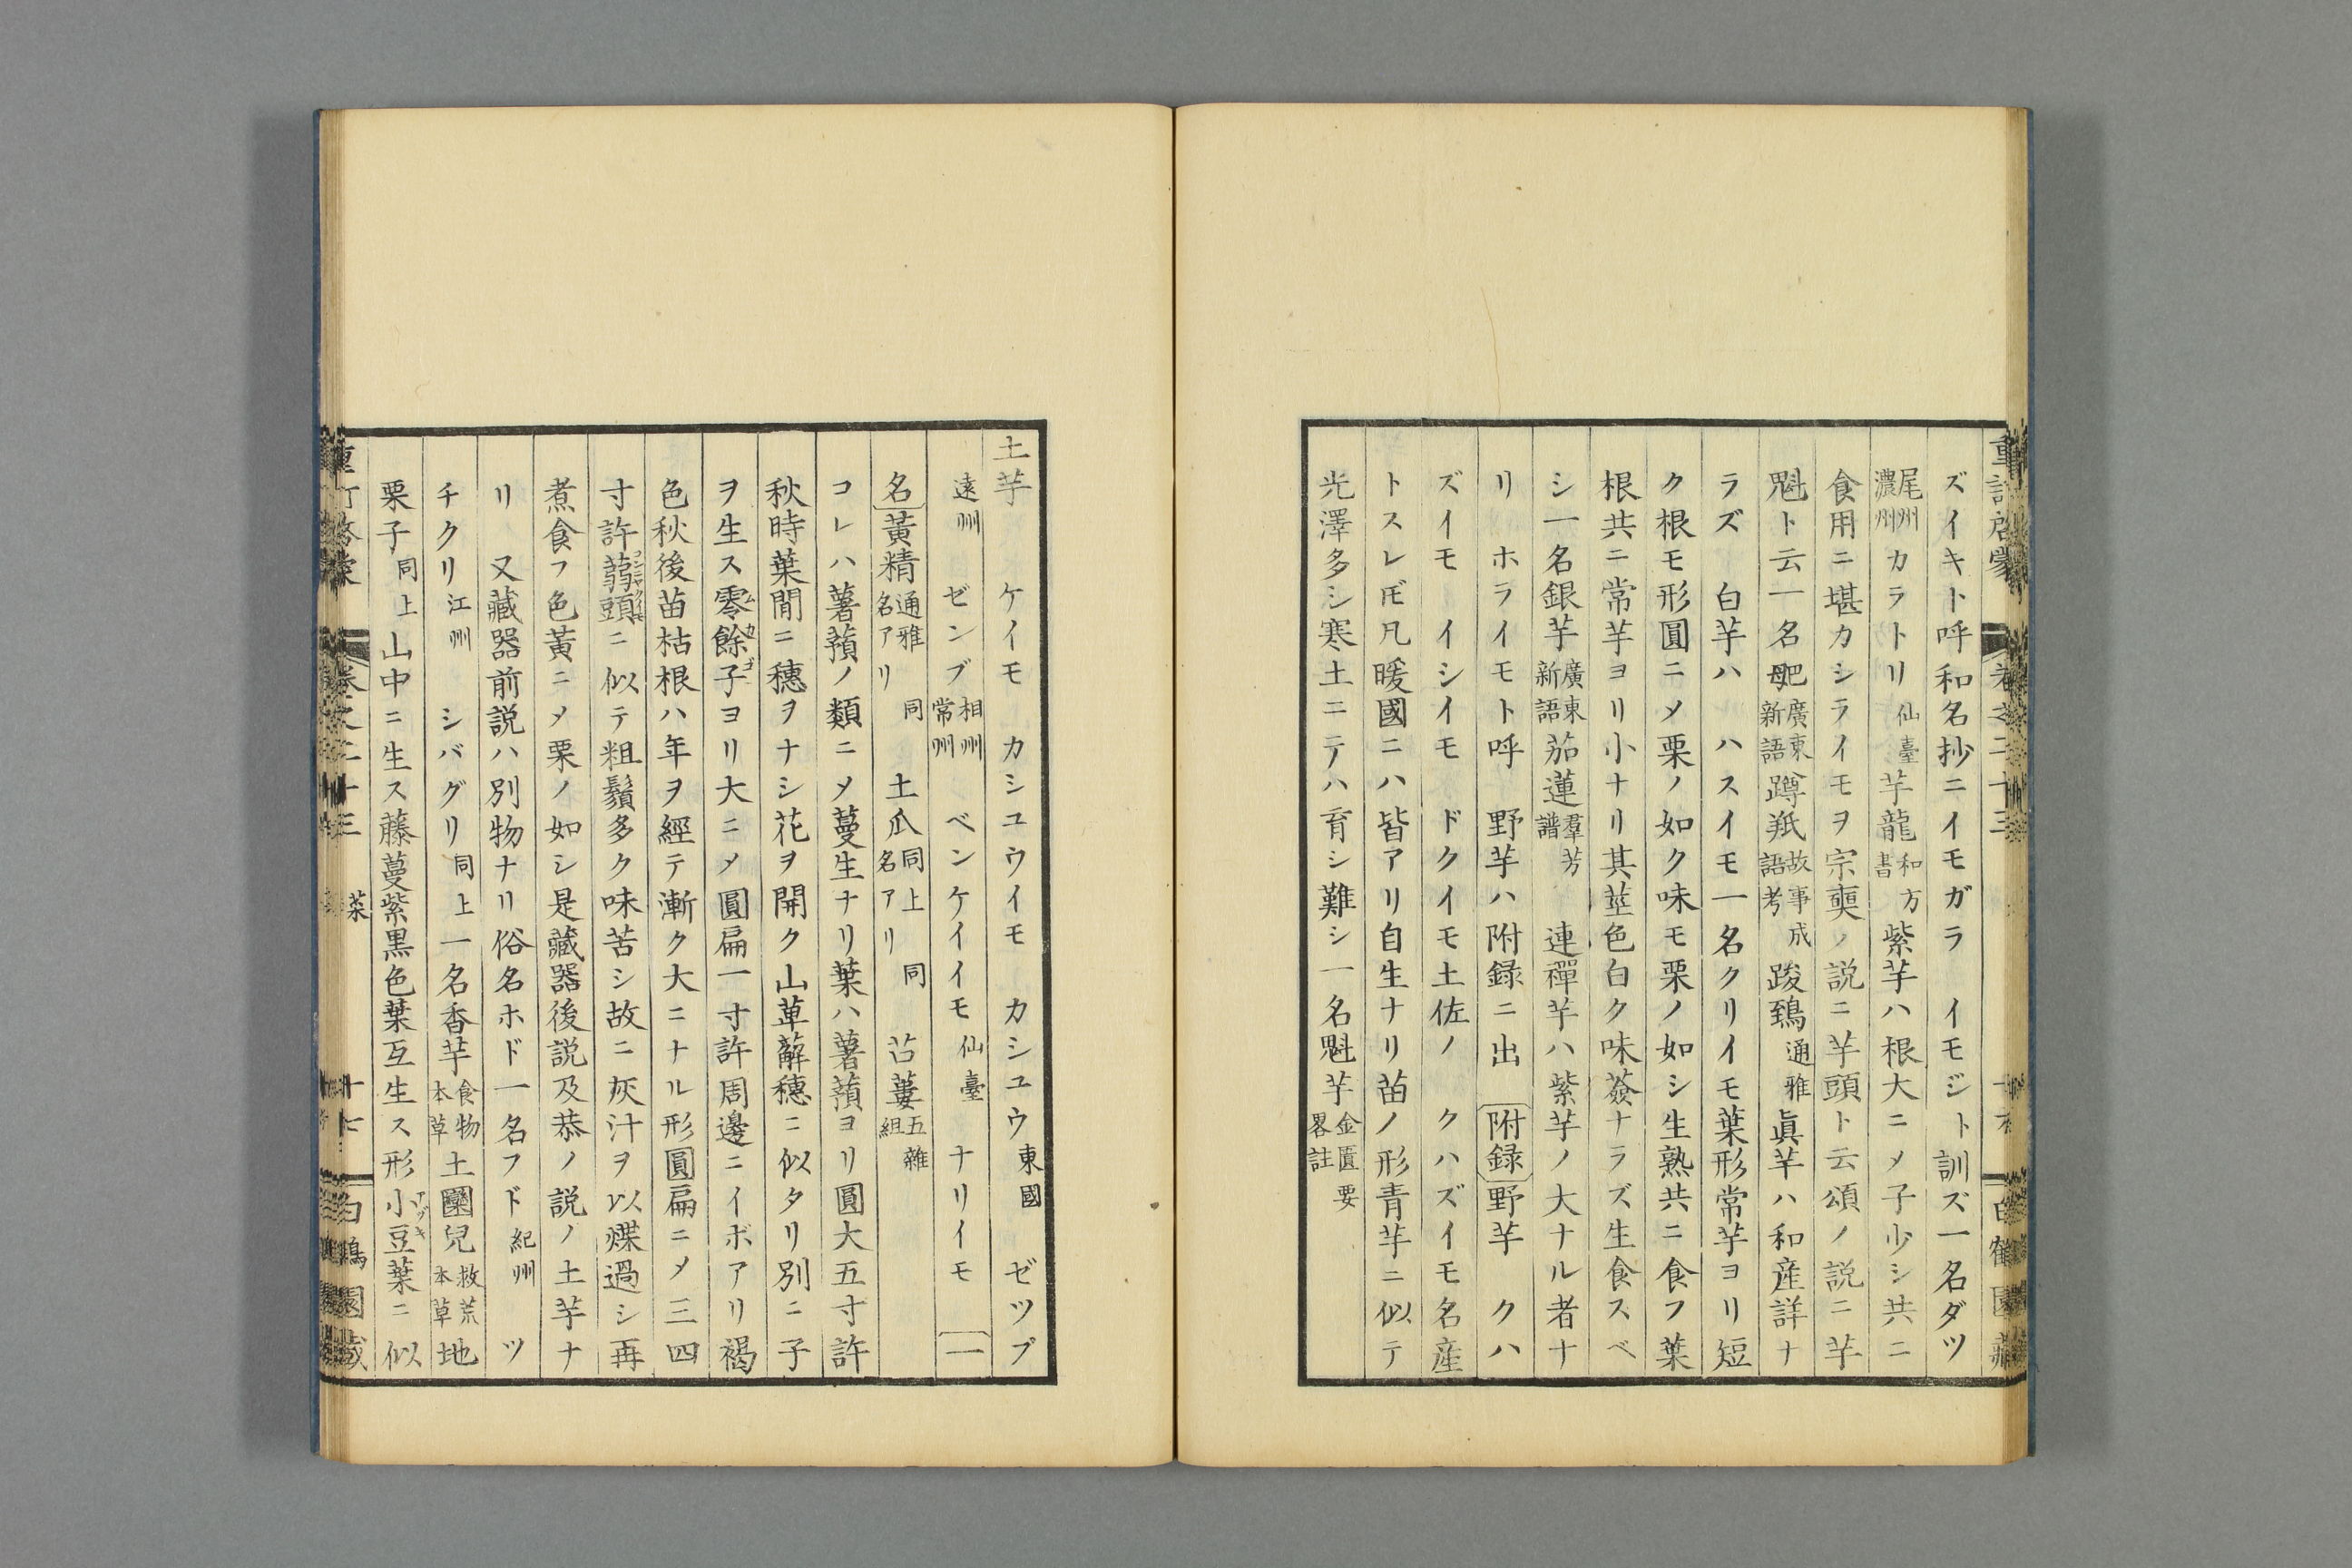 ズイキト呼和名抄ニイモガラ イモジト訓ズ一名ダツ
尾州濃州カラトリ仙臺芋龍和方書紫芋ハ根大ニメ子少シ共ニ
食用ニ堪カシライモヲ宗奭ノ説ニ芋頭ト云頌ノ説ニ芋
魁ト云一名廣東新語蹲羝故事成語考踆鵄通雅眞芋ハ和産詳ナ
ラズ 白芋ハ ハスイモ一名クリイモ葉形常芋ヨリ短
ク根モ形圓ニメ栗ノ如ク味モ栗ノ如シ生熟共ニ食フ葉
根共ニ常芋ヨリ小ナリ其莖色白ク味蘞ナラズ生食スベ
シ一名銀芋廣東新語茄蓮羣芳譜 連禪芋ハ紫芋ノ大ナル者ナ
リ ホライモト呼 野芋ハ附録ニ出 附録野芋 クハ
ズイモ イシイモ ドクイモ土佐ノ クハズイモ名産
トスレ𪜈凡暖國ニハ皆アリ自生ナリ苗ノ形青芋ニ似テ
光澤多シ寒土ニテハ育シ難シ一名魁芋金匱要畧註
土芋 ケイモ カシユウイモ カシユウ東國 ゼツブ
遠州 ゼンブ相州常州 ベンケイイモ仙臺 ナリイモ 一
名黃精通雅同名アリ 土瓜同上同名アリ 苫蔞五雜組
コレハ薯蕷ノ類ニメ蔓生ナリ葉ハ薯蕷ヨリ圓大五寸許
秋時葉間ニ穗ヲナシ花ヲ開ク山萆薢穗ニ似タリ別ニ子
ヲ生ス零餘子ムカゴヨリ大ニメ圓扁一寸許周邊ニイボアリ褐
色秋後苗枯根ハ年ヲ經テ漸ク大ニナル形圓扁ニメ三四
寸許蒻頭コンニャクイモニ似テ粗鬚多ク味苦シ故ニ灰汁ヲ以煠過シ再
煮食フ色黃ニメ栗ノ如シ是藏器後説及恭ノ説ノ土芋ナ
リ 又藏器前説ハ別物ナリ俗名ホド一名フド紀州 ツ
チクリ江州 シバグリ同上一名香芋食物本草土圞兒救荒本草地
栗子同上山中ニ生ス藤蔓紫黒色葉互生ス形小豆アヅキ葉ニ似
菜